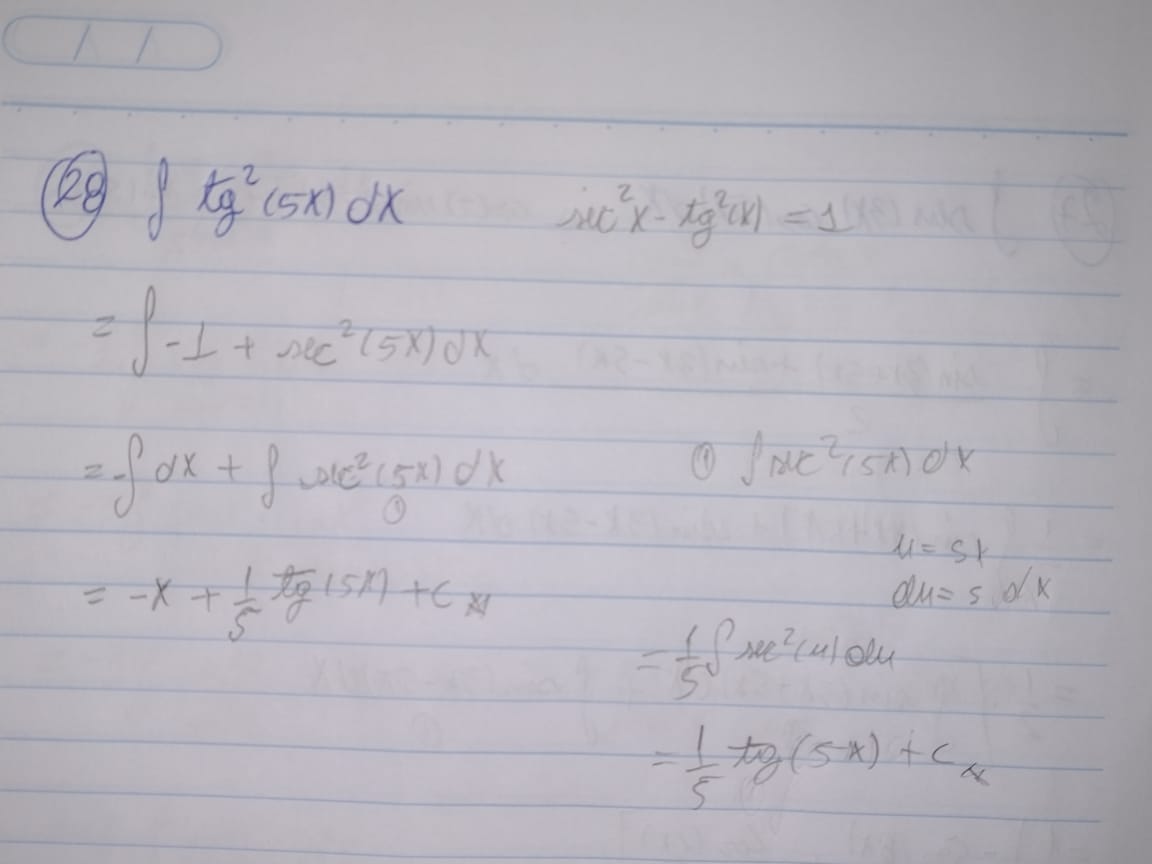 / /
28 ∫ tg²(5x) dx sec²x - tg²(x) = 1
= ∫ -1 + sec²(5x) dx
= -∫ dx + ∫ sec²(5x) dx ① ∫ sec²(5x) dx
①
u = 5x
= -x + 1/5 tg(5x) + C du = 5 dx
= 1/5 ∫ sec²(u) du
= 1/5 tg(5x) + C